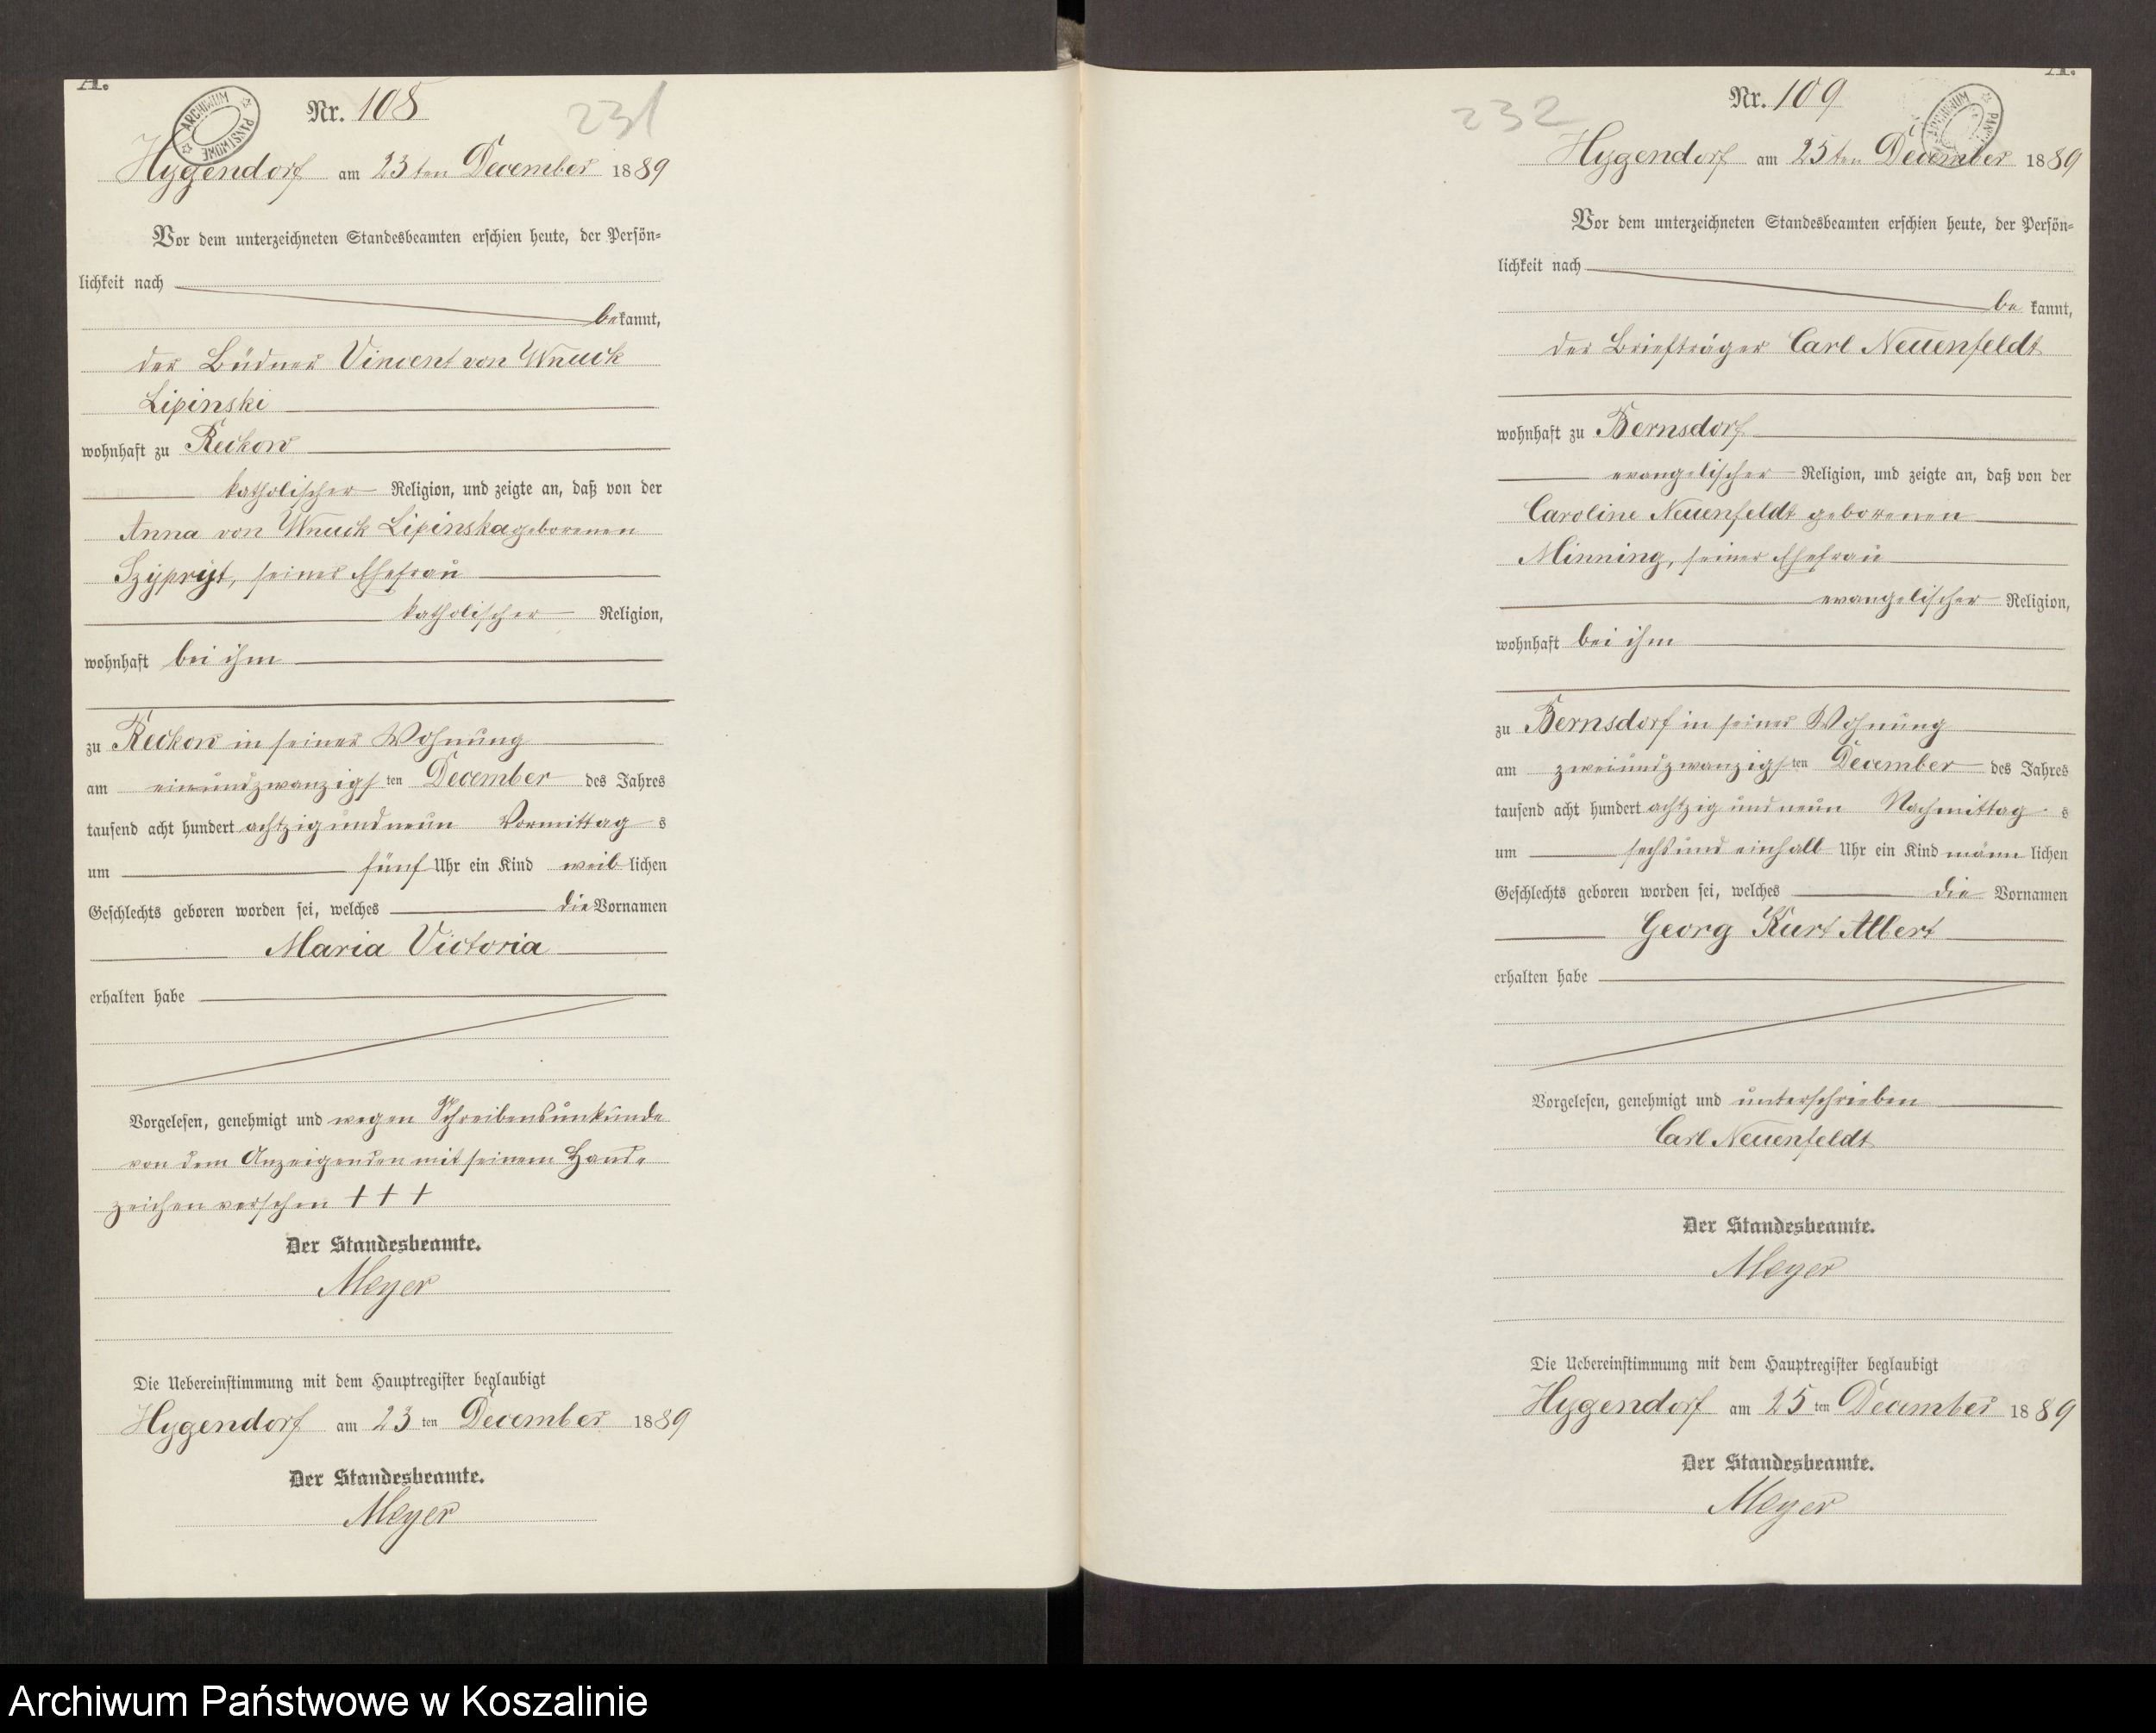 A.
ARCHIWUM PAŃSTWOWE
Nr. 108
231
Hygendorf am 23ten December 1889
Vor dem unterzeichneten Standesbeamten erschien heute, der Persön=
lichkeit nach
bekannt,
der Büdner Vincent von Wnuck
Lipinski
wohnhaft zu Reckow
katholischer Religion, und zeigte an, daß von der
Anna von Wnuck Lipinska geborenen
Szypryt, seiner Ehefrau
katholischer Religion,
wohnhaft bei ihm
zu Reckow in seiner Wohnung
am einundzwanzigsten December des Jahres
tausend acht hundert achtzig und neun Vormittags
um fünf Uhr ein Kind weiblichen
Geschlechts geboren worden sei, welches die Vornamen
Maria Victoria
erhalten habe
Vorgelesen, genehmigt und wegen Schreibensunkunde
von dem Anzeigenden mit seinem Hand=
zeichen versehen + + +
Der Standesbeamte.
Meyer
Die Uebereinstimmung mit dem Hauptregister beglaubigt
Hygendorf am 23ten December 1889
Der Standesbeamte.
Meyer
A.
Nr. 109
232
Hygendorf am 25ten December 1889
Vor dem unterzeichneten Standesbeamten erschien heute, der Persön=
lichkeit nach
bekannt,
der Briefträger Carl Neuenfeldt
wohnhaft zu Bernsdorf
evangelischer Religion, und zeigte an, daß von der
Caroline Neuenfeldt geborenen
Minning, seiner Ehefrau
evangelischer Religion,
wohnhaft bei ihm
zu Bernsdorf in seiner Wohnung
am zweiundzwanzigsten December des Jahres
tausend acht hundert achtzig und neun Nachmittags
um sechs und einhalb Uhr ein Kind männlichen
Geschlechts geboren worden sei, welches die Vornamen
Georg Kurt Albert
erhalten habe
Vorgelesen, genehmigt und unterschrieben
Carl Neuenfeldt
Der Standesbeamte.
Meyer
Die Uebereinstimmung mit dem Hauptregister beglaubigt
Hygendorf am 25ten December 1889
Der Standesbeamte.
Meyer
Archiwum Państwowe w Koszalinie